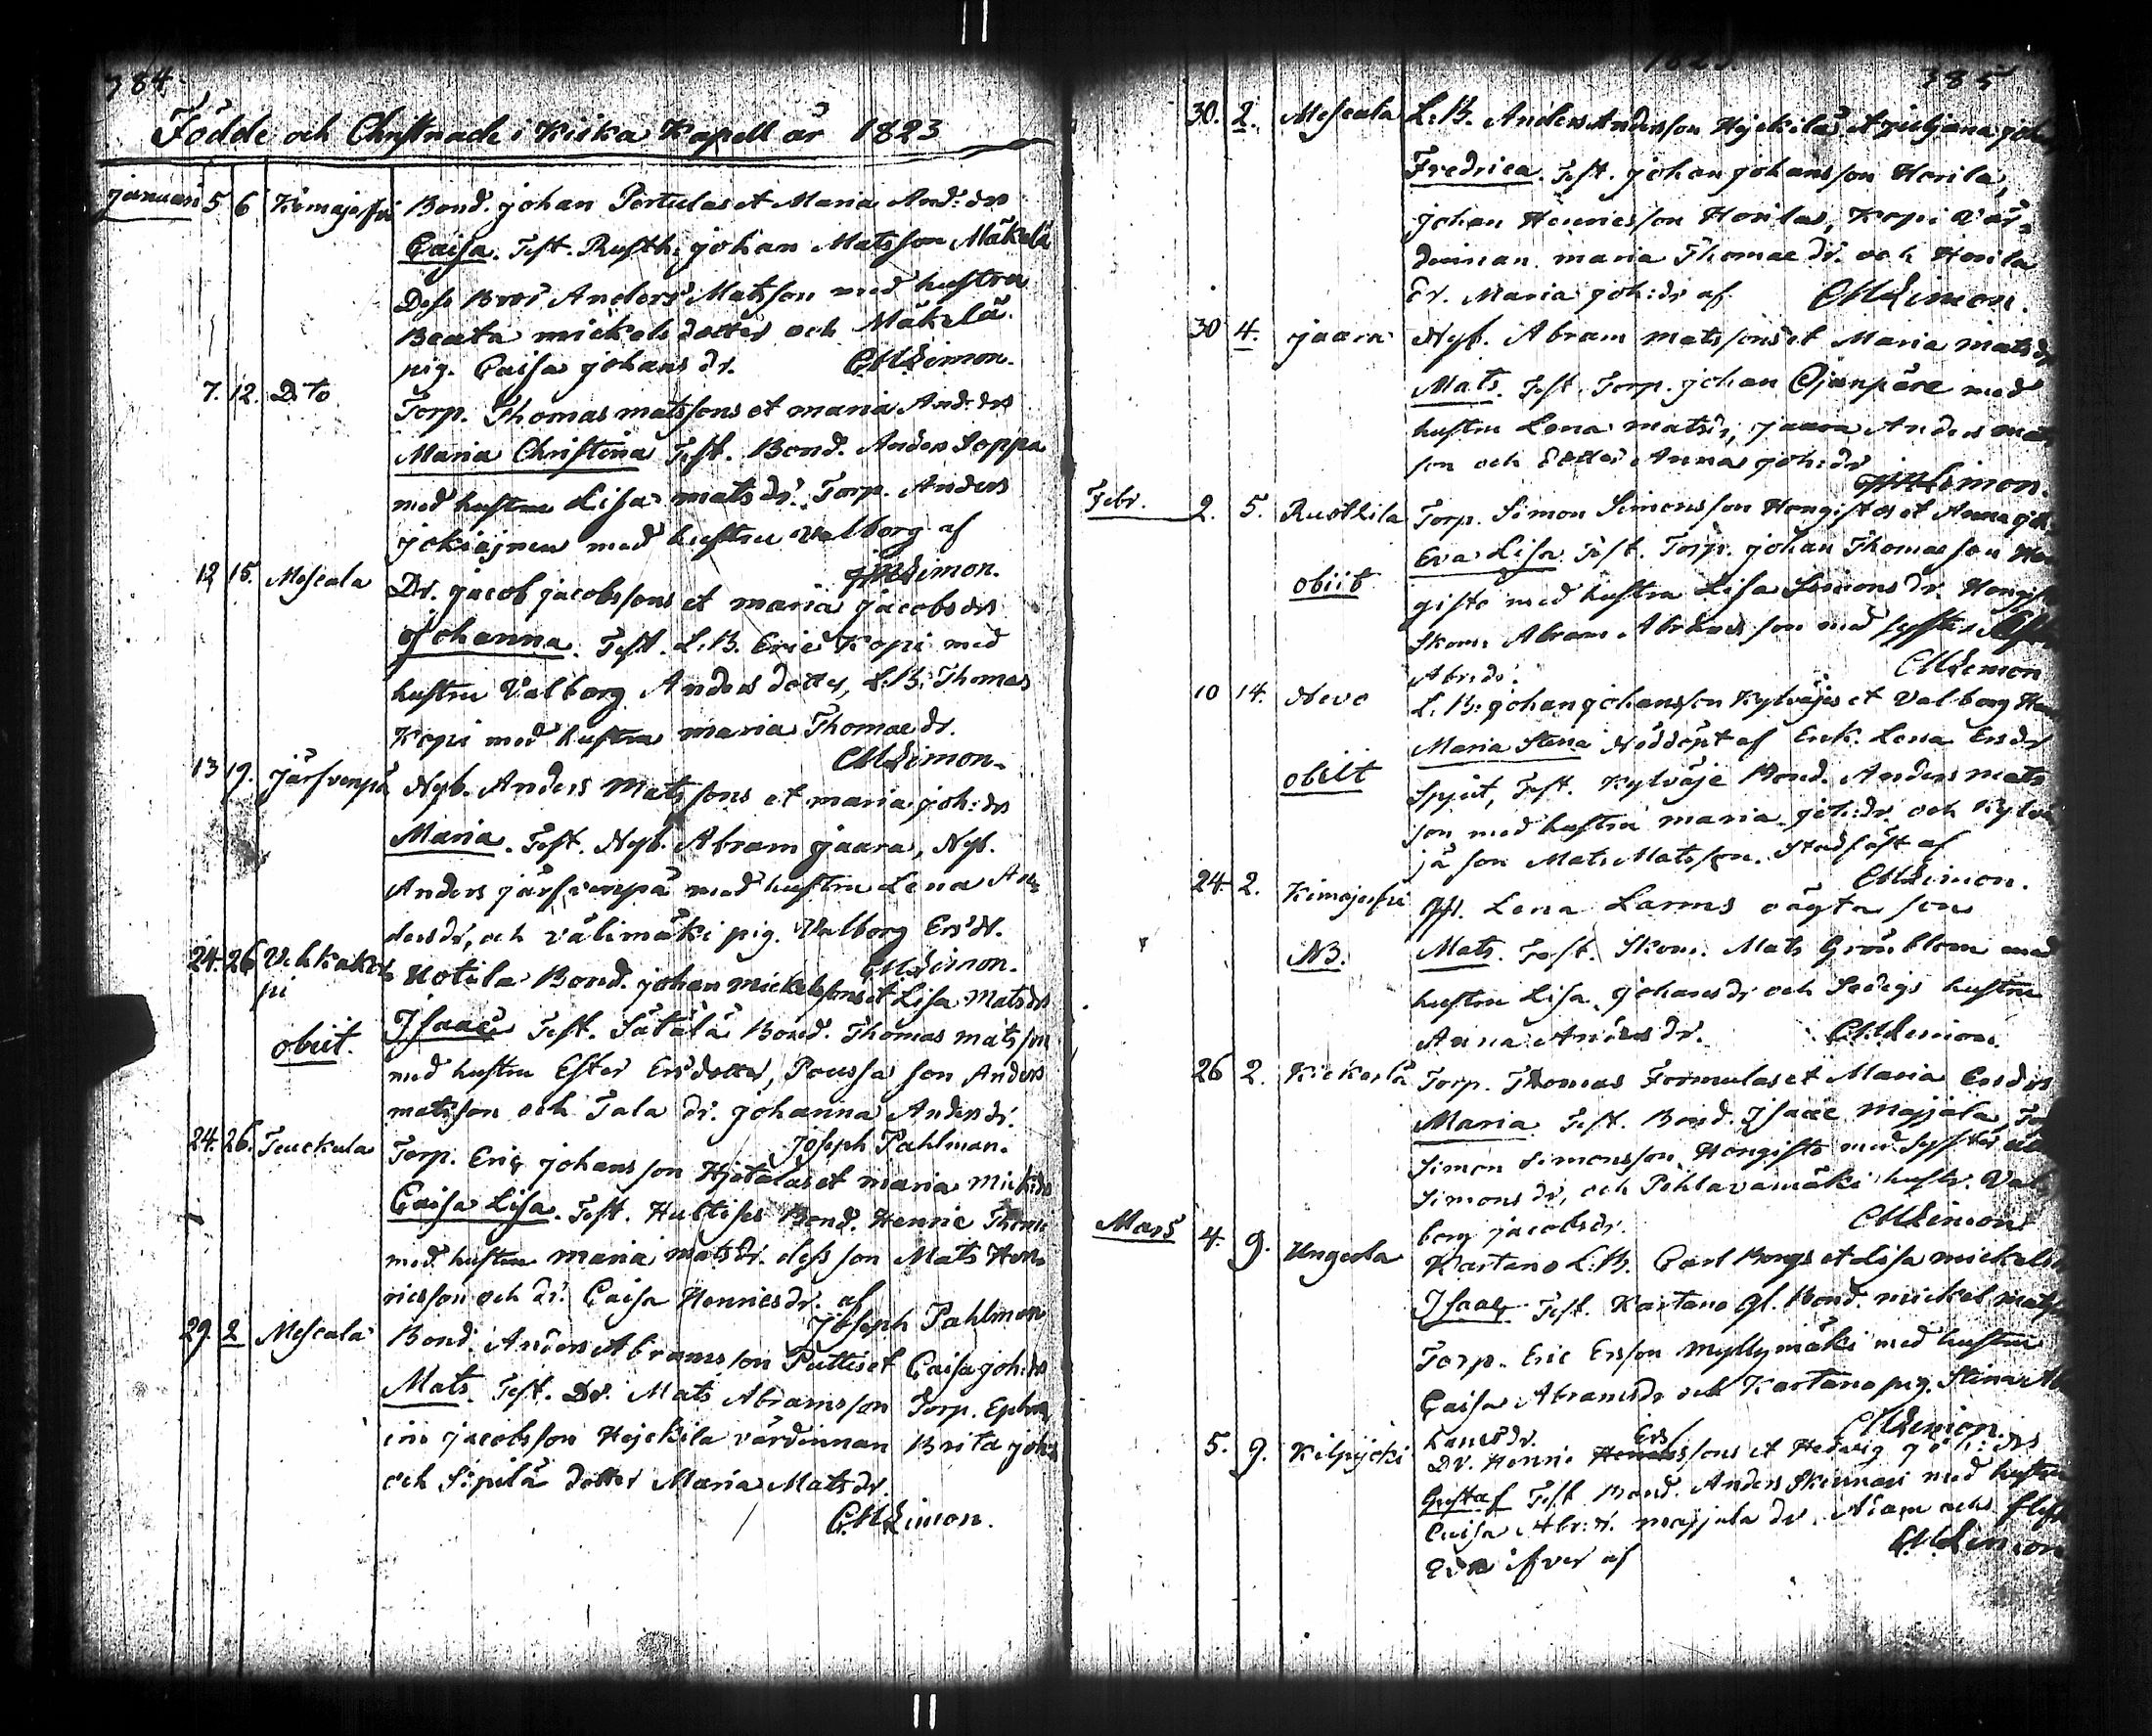 384.
Födde och Christnade i Kiska Kapell år 1823
Januari 5 6 Bond. Johan Pertulas et Maria And: drs
Caisa. Test. Rusth. Johan Matsson Mäkelä
Dess Bror Anders Matsson med hustru
Beata Mickelsdotter och Mäkelä
pig. Caisa Johans dr. CMLimon.
7. 12. Dito Torp. Thomas Matssons et Maria And: drs
Maria Christina Test. Bond. Anders Soppa
med hustru Lisa Mats dr. Torp. Anders
med hustru Valborg af
Limon.
12 15. Mescala Dr. Jacob Jacobssons et Maria Jacobs drs
Johanna. Test. L.B. Eric Kopi med
hustru Valborg Anders dotter, L.B. Thomas
Kopi med hustru Maria Thomae dr.
CMLimon.
13 19. Järfvenpä Nyb. Anders Matssons et Maria Joh: drs
Maria. Test. Nyb. Abram Jaara, Nyb.
Anders Järfvenpä med hustru Lena An
dersdr, och Välimäki pig. Valborg Ers dr.
CMLimon.
24. 26 Uotila Bond. Johan Mickelssons et Lisa Mats drs
pi
obiit. Isaac Test. Sätälä Bond. Thomas Matsson
med hustru Ester Ersdotter, Poussa son Anders
Matsson och Tala dr. Johanna Anders dr.
Joseph Pahlman.
24. 26. Teuckula Torp. Eric Johansson Hjetalas et Maria Mick: drs
Caisa Lisa. Test. Bond. Henric Thom
med hustru Maria Mats dr. dess son Mats Hen
ricsson och dr. Caisa Henrics dr. af
Joseph Pahlman
29. 2 Mescala Bond. Anders Abramsson Puttis et Caisa Joh: drs
Mats. Test. Dr. Mats Abramsson Torp. Ephra
im Jacobsson Hejckilä värdinnan Brita Joh:
och Sipilä dotter Maria Mats dr.
CMLimon.
385
30. 2. Mescala L.B. Anders Andersson Hejckiläs et Juliana Joh
Fredrica. Test. Johan Johansson Horila,
Johan Henricsson Horilas, Kopi Vär
dinnan Maria Thomae dr. och Horila
Dr. Maria Joh: dr af CMLimon.
30 4. Jaara Nyb. Abram Matssons et Maria Mats dr
Mats. Test. Torp. Johan Ojanpäre med
hustru Lena Matsdr, Jaara Anders Mats
son och dotter Anna Joh: dr
Limon.
Febr. 2. 5. Rusthila Torp. Simon Simonsson Hongistos et Anna Joh
Eva Lisa Test. Torp. Johan Thomaeson Hon
obiit gisto med hustru Lisa Simons dr. Hongisto
Skom. Abram Abrahamsson med syster
Abr: dr. CMLimon
10 14. Nevo L.B. Johan Johansson Kylväjes et Valborg Hen
Maria Stena Nöddöpt af Enk. Lena Ers dr
obiit Spjut, Test. Kylväje Bond. Anders Mats
son med hustru Maria Joh: dr och Kylvä
jä son Mats Matsson. Stadfäst af
CMLimon.
24. 2. Lena Larms oägta son
NB. Mats. Test. Skom. Mats Grönblom med
hustru Lisa Johans dr och Sedigs hustru
Anna Anders dr. CMLimon.
26 2. Kickerlä Torp. Thomas Formulas et Maria Ers drs
Maria Test. Bond. Isaac Majjala, Torp
Simon Simonsson Hongisto med syster
Simons dr, och Pihlavamäki hustr. Val
borg Jacobs dr. CMLimon
Mars 4. 9. Ungeola Kartano L.B. Carl Borgs et Lisa Mickels
Isaac. Test. Kartano Gl. Bond. Mickel Mats
Torp. Eric Ersson Myllymäki med hustru
Caisa Abrams dr och Kartano pig. Stina Abr
hams dr. CMLimon.
5. 9. Kilpijoki Dr. Henric Ers ssons et Hedvig Joh: drs
Gustaf Test. Bond. Anders Skinnari med hustru
Caisa Abr: dr. Majjala dr. Adam och
Eva Ifver af CMLimon